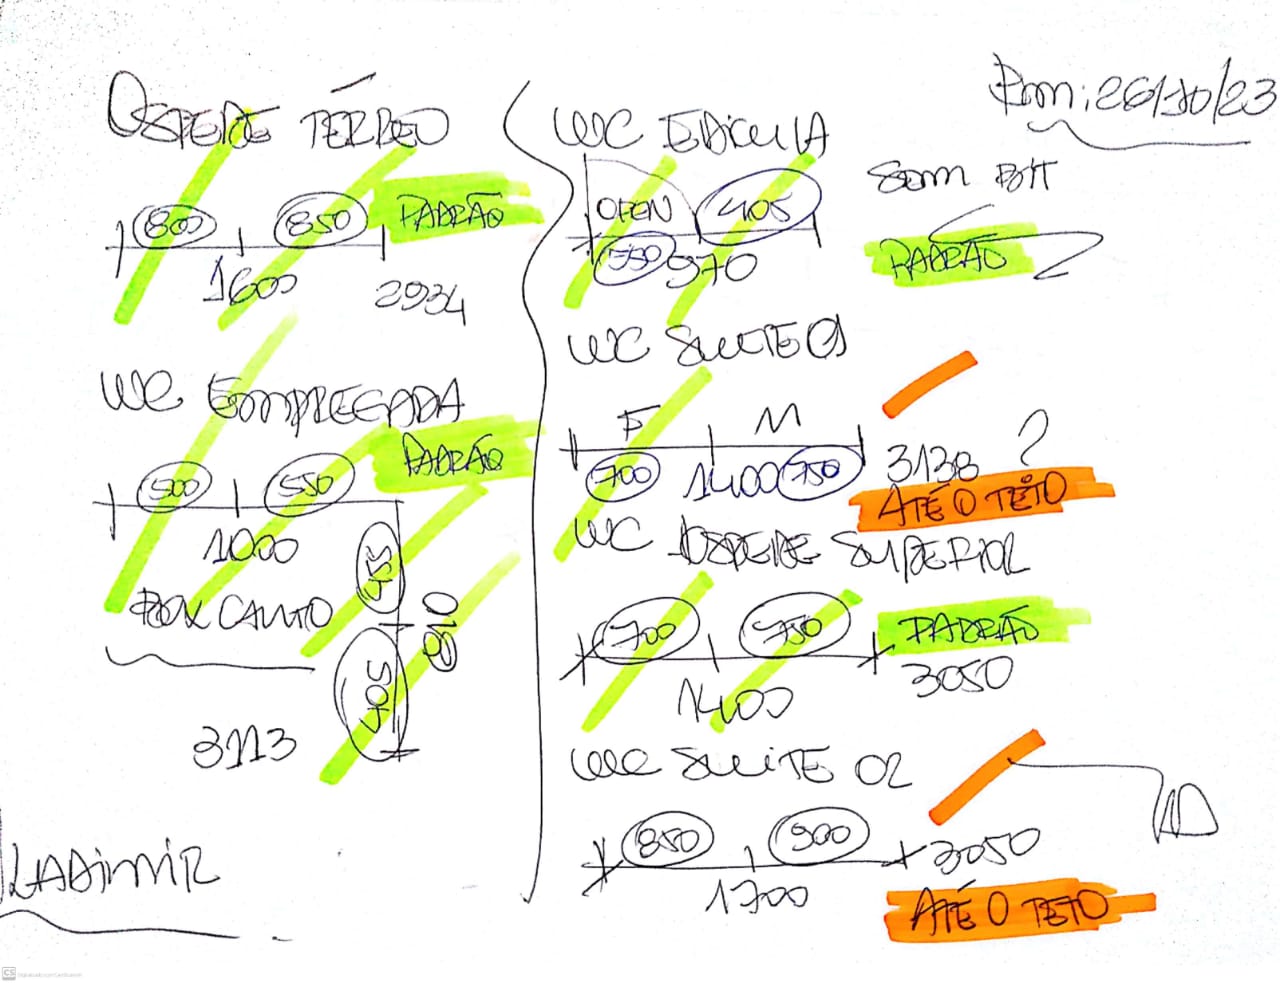 OSPEDE TÉRREO
800 850 PADRÃO
1600 2934
WC EMPREGADA
500 550 PADRÃO
1000
455
BOX CANTO
810
405
3113
LADIMIR
26/10/23
WC EDICULA
SEM BIT
OPEN 405
PADRÃO
750 970
WC SUITE 01
F M
700 1400 750 3138 ?
ATÉ O TETO
WC HOSPEDE SUPERIOR
700 750 PADRÃO
1400 3050
WC SUITE 02
850 900 3050
1700
ATÉ O TETO
CS